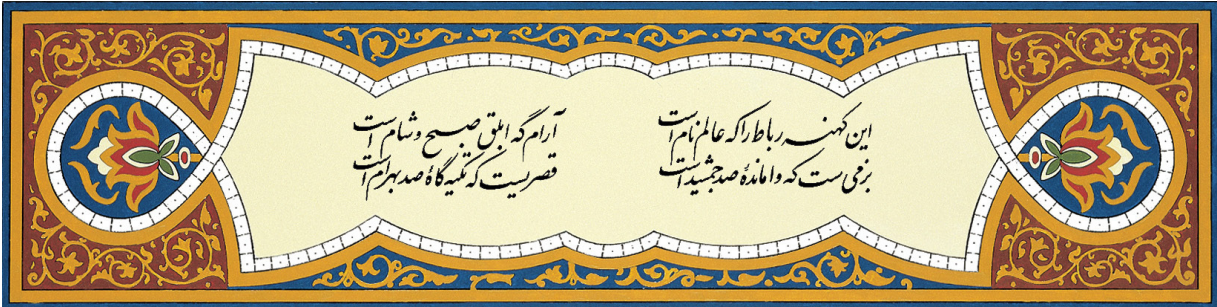 این کهنه رباط را که عالم نام است
آرامگه ابلق صبح و شام است
بزمی ست که واماندهٔ صد جمشید است
قصریست که تکیه گاهٔ صد بهرام است